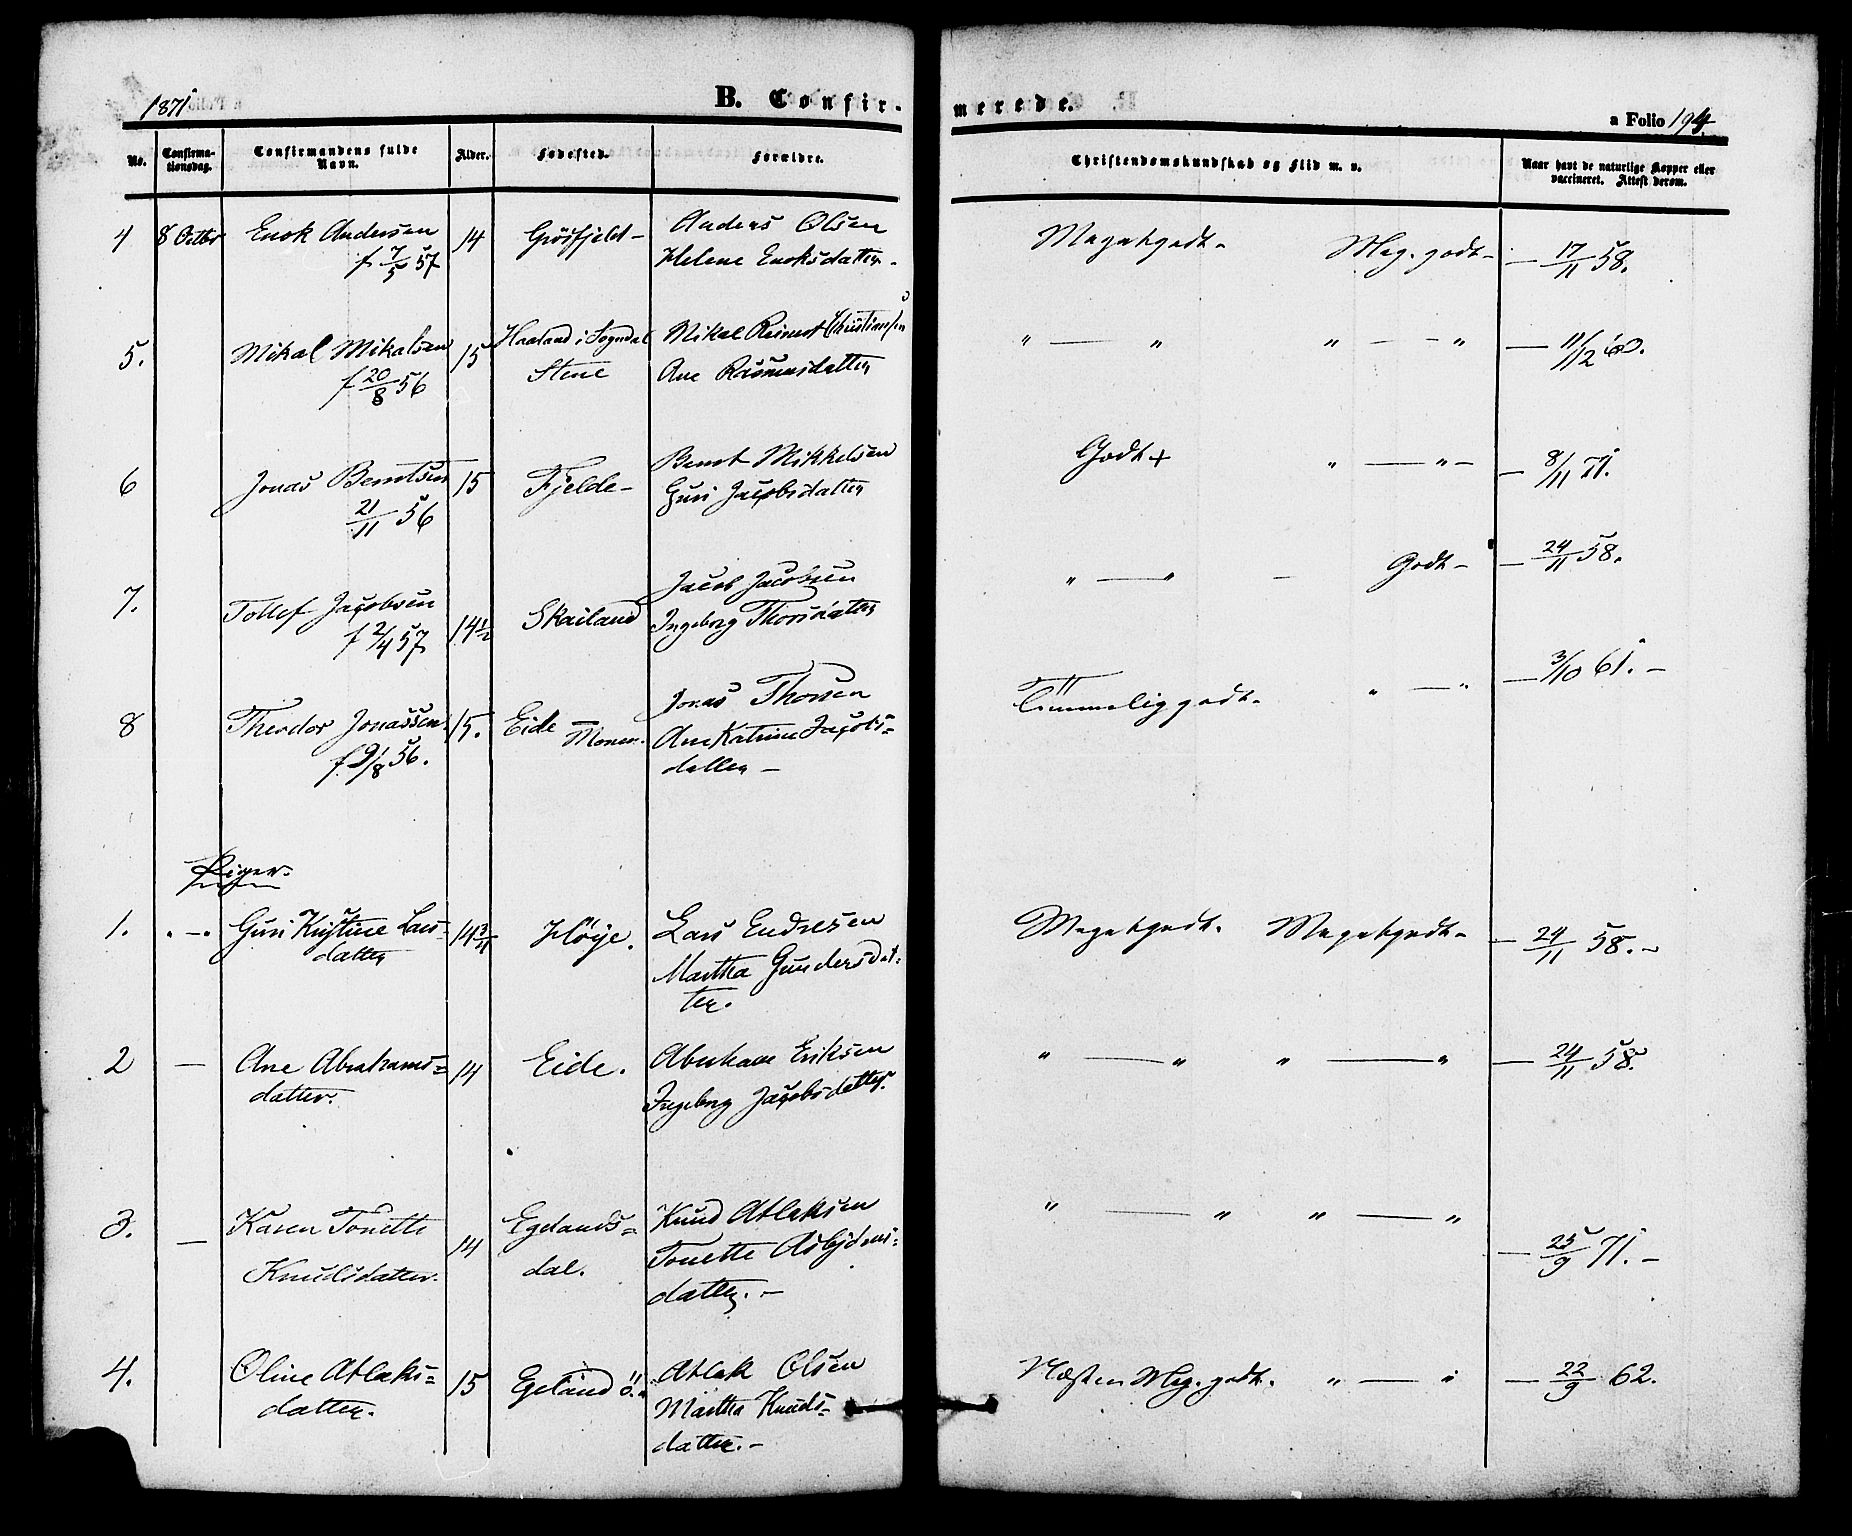 1871
B. Confir-
merede.
a Folio 194
No.
Confirma-
tionsdag.
Confirmandens fulde
Navn.
Alder.
Fødested.
Forældre.
Christendomskundskab og Flid m. v.
Naar havt de naturlige Kopper eller
vaccineret. Attest derom.
4 8 Octbr Enok Andersen 14 Grösfjeld- Anders Olsen Meget godt. Meg. godt - - 17/11 58.
f 7/5 57 Helene Enoksdatter.
5. Mikal Mikalsen 15 Haaland i Sogndal Mikal Reinert Christiansen " — " " — " — 11/12 60.
f 20/8 56 Stene Ane Rasmusdatter
6 Jonas Berntsen 15 Fjelde- Bernt Mikkelsen Godt + " — " - - 8/11 71.
21/11 56 Guri Jacobsdatter
7. Tollef Jacobsen 14 1/2 Skailand Jacob Jacobsen " — " - Godt - - 24/11 58.
f 2/4 57 Ingeborg Thorsdatter
8 Theodor Jonassen 15. Eide - Jonas Thorsen Temmelig godt. " — " — 3/10 61. -
f 9/8 56. Monen. Ane Katrine Jacobs=
datter -
Piger.
1. " - " Guri Kristine Lars= 14 3/4 Höÿe. Lars Endresen Meget godt. Meget godt - - 24/11 58. -
datter Martha Gundersdat=
ter.
2 — Ane Abrahams= 14 Eide. Abraham Eriksen " — " " — " — 24/11 58.
datter. Ingeborg Jacobsdatter.
3. — Karen Tonette 14 Egelands= Knud Atlaksen " — " " — " — 25/9 71. -
Knudsdatter. dal. Tonette Asbjørns=
datter. -
4. Oline Atlaks= 15 Egeland ö. Atlak Olsen Næsten Meg. godt. " — " — 22/9 62.
datter. Martha Knuds=
datter. -